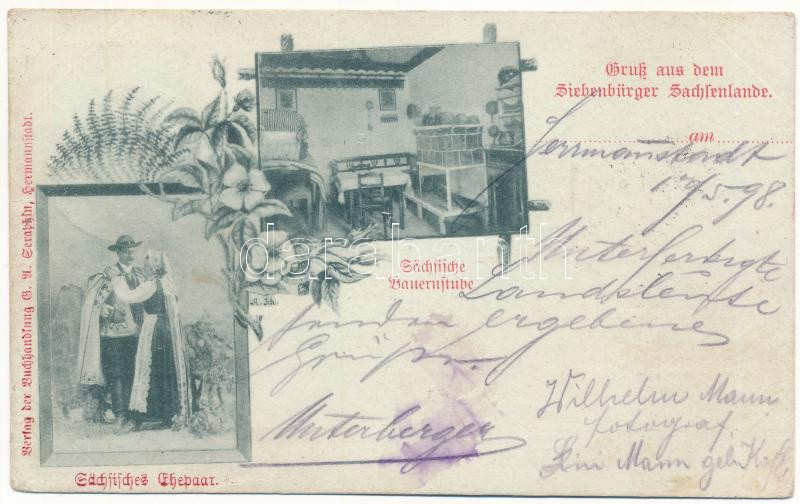 Gruß aus dem
Siebenbürger Sachsenlande.
am
Herrmannstadt
17/5.98.
Sächsische
Bauernstube
Unterfertigte
Landsleute
senden ergebene
Grüße.
Unterberger
Wilhelm Mann
Fotograf
Mann geb.
Sächsisches Ehepaar.
Verlag der Buchhandlung G. A. Seraphin, Hermannstadt.
A. Sch.
darabanth